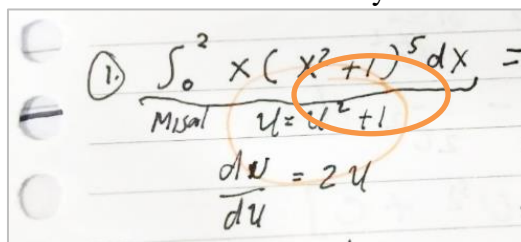 1. ∫₀² x (x² + 1)⁵ dx =
Misal u = u² + 1
du/du = 2u